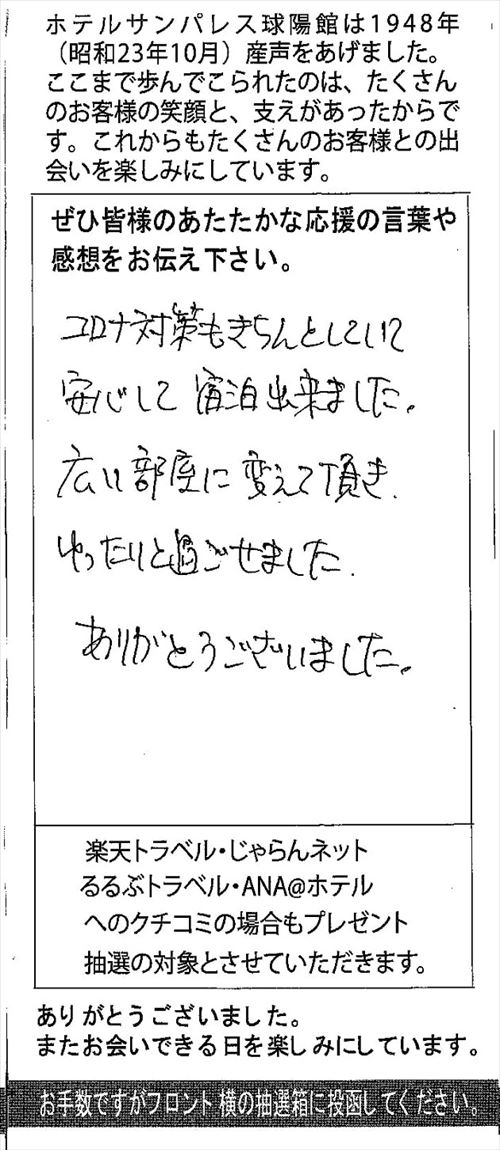 ホテルサンパレス球陽館は1948年
（昭和23年10月）産声をあげました。
ここまで歩んでこられたのは、たくさん
のお客様の笑顔と、支えがあったからで
す。これからもたくさんのお客様との出
会いを楽しみにしています。
ぜひ皆様のあたたかな応援の言葉や
感想をお伝え下さい。
コロナ対策もきちんとしていて
安心して宿泊出来ました。
広い部屋に変えて頂き、
ゆったりと過ごせました。
ありがとうございました。
楽天トラベル・じゃらんネット
るるぶトラベル・ANA@ホテル
へのクチコミの場合もプレゼント
抽選の対象とさせていただきます。
ありがとうございました。
またお会いできる日を楽しみにしています。
お手数ですがフロント横の抽選箱に投函してください。